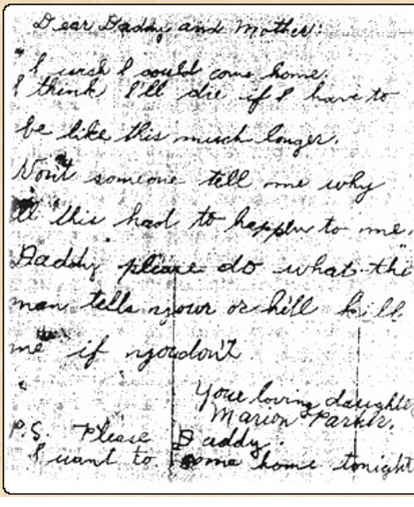 Dear Daddy and Mother:
I wish I could come home.
I think I'll die if I have to
be like this much longer.
Won't someone tell me why
all this had to happen to me.
Daddy please do what the
man tells you or he'll kill
me if you don't
Your loving daughter
Marion Parker.
P.S. Please Daddy.
I want to come home tonight